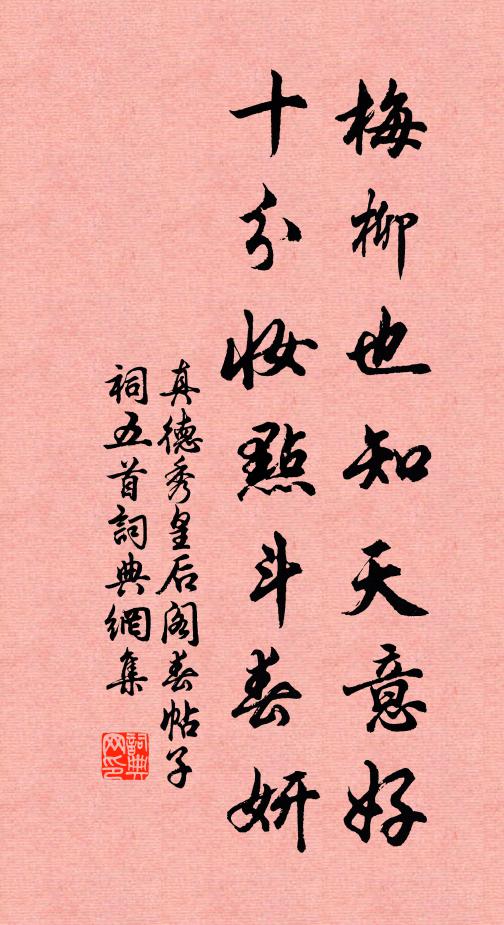 梅柳也知天意好
十分妝點斗春妍
真德秀皇后阁春帖子
祠五首詞典網集
詞典
网印